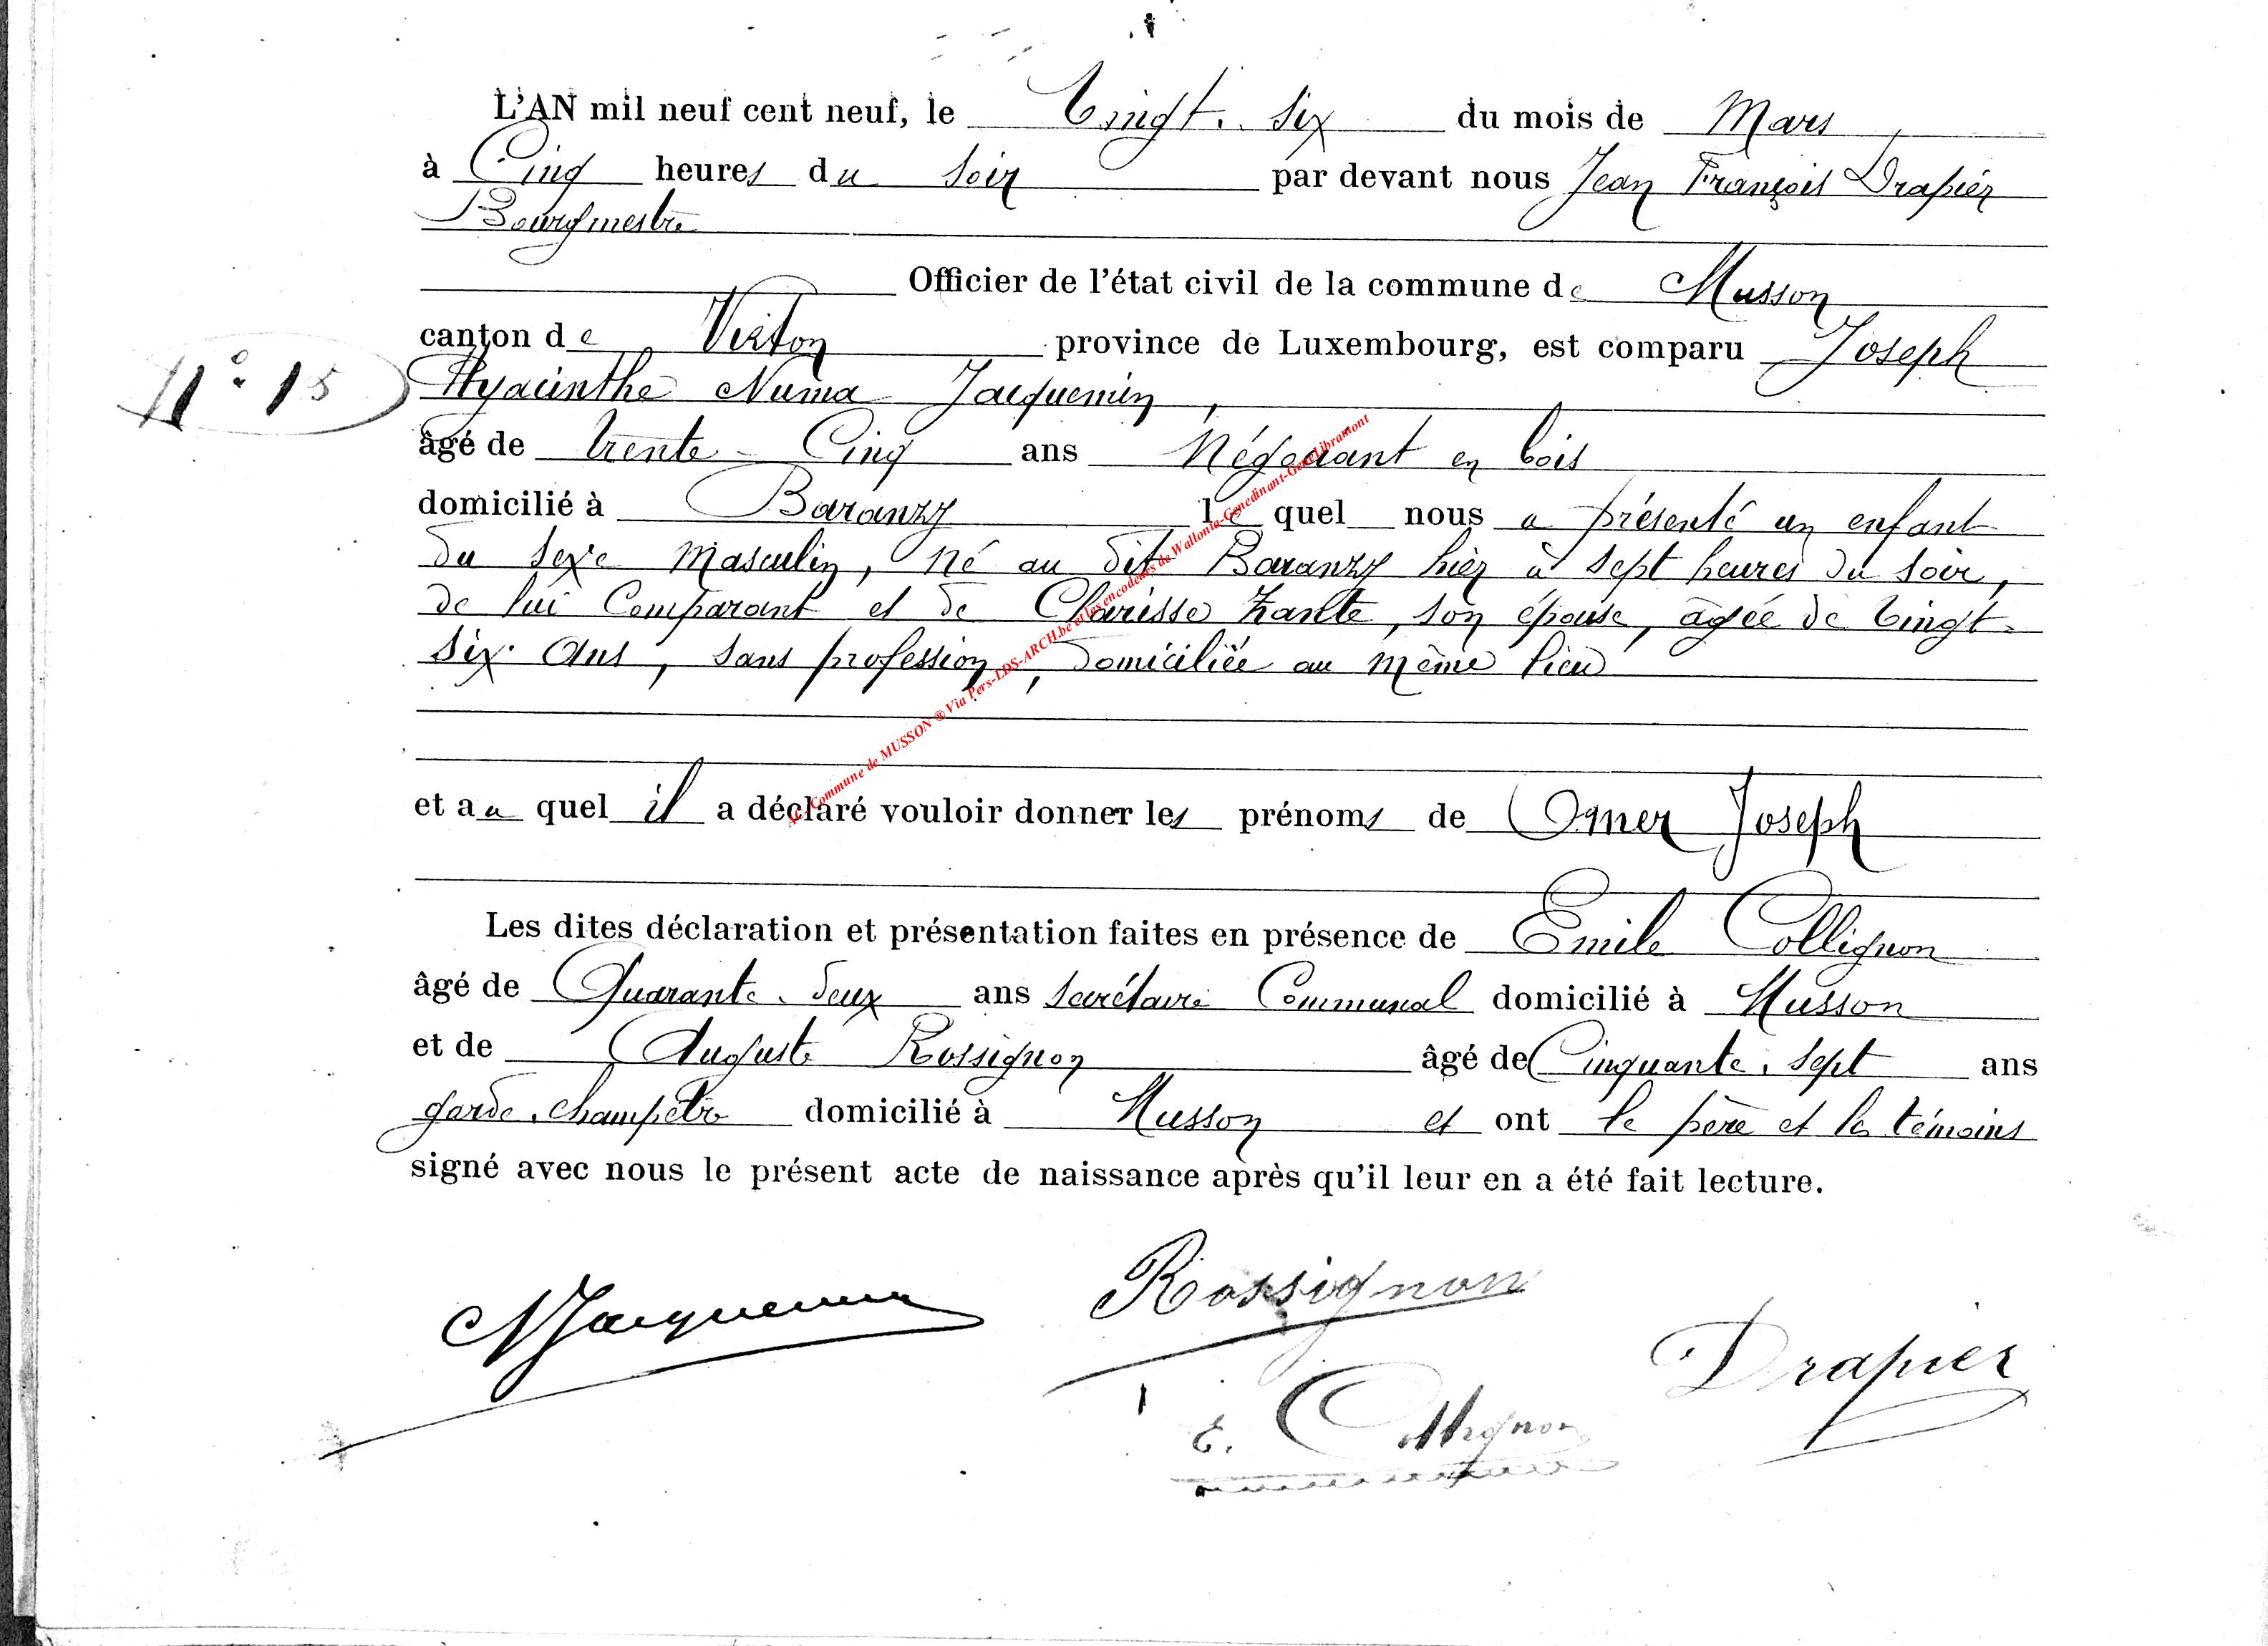 L'AN mil neuf cent neuf, le Vingt-six du mois de Mars,
à Cinq heures du soir par devant nous Jean François Drapier
Bourgmestre
Officier de l'état civil de la commune de Musson
canton de Virton province de Luxembourg, est comparu Joseph
N° 15
Hyacinthe Numa Jacquemin,
âgé de trente-Cinq ans Négociant en bois
domicilié à Baranzy lequel nous a présenté un enfant
du sexe Masculin, né au dit Baranzy hier à sept heures du soir,
de lui Comparant et de Clarisse Zante, son épouse, âgée de vingt-
six ans, sans profession, domiciliée au même lieu
et au quel il a déclaré vouloir donner les prénoms de Omer Joseph
Les dites déclaration et présentation faites en présence de Emile Collignon
âgé de Quarante-deux ans secrétaire Communal domicilié à Musson
et de Auguste Rossignon âgé de Cinquante-sept ans
garde-champêtre domicilié à Musson et ont le père et les témoins
signé avec nous le présent acte de naissance après qu'il leur en a été fait lecture.
NJacquemin
Rossignon
Drapier
E. Collignon
AC-Commune de MUSSON ® Via Pers-LDS-ARCH.be et les encodeurs de Wallonia-Genedinant-GeneLibramont